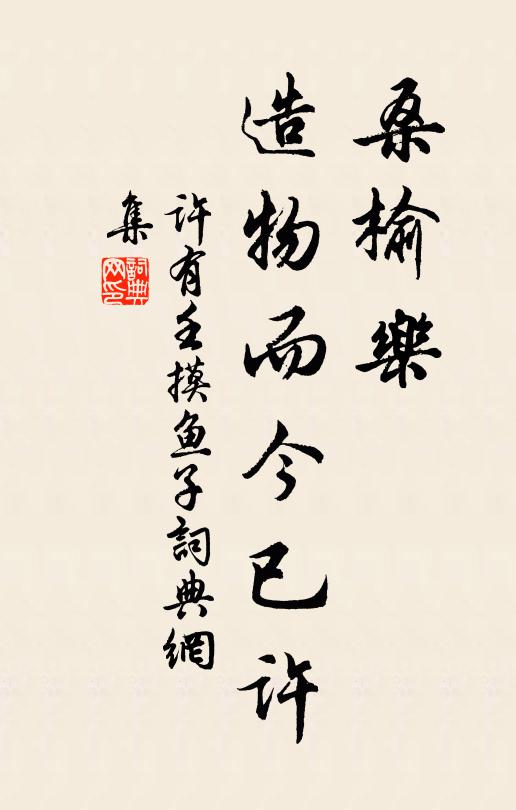 桑榆樂
造物而今已許
許有壬摸鱼子詞典網
集
詞典
网印